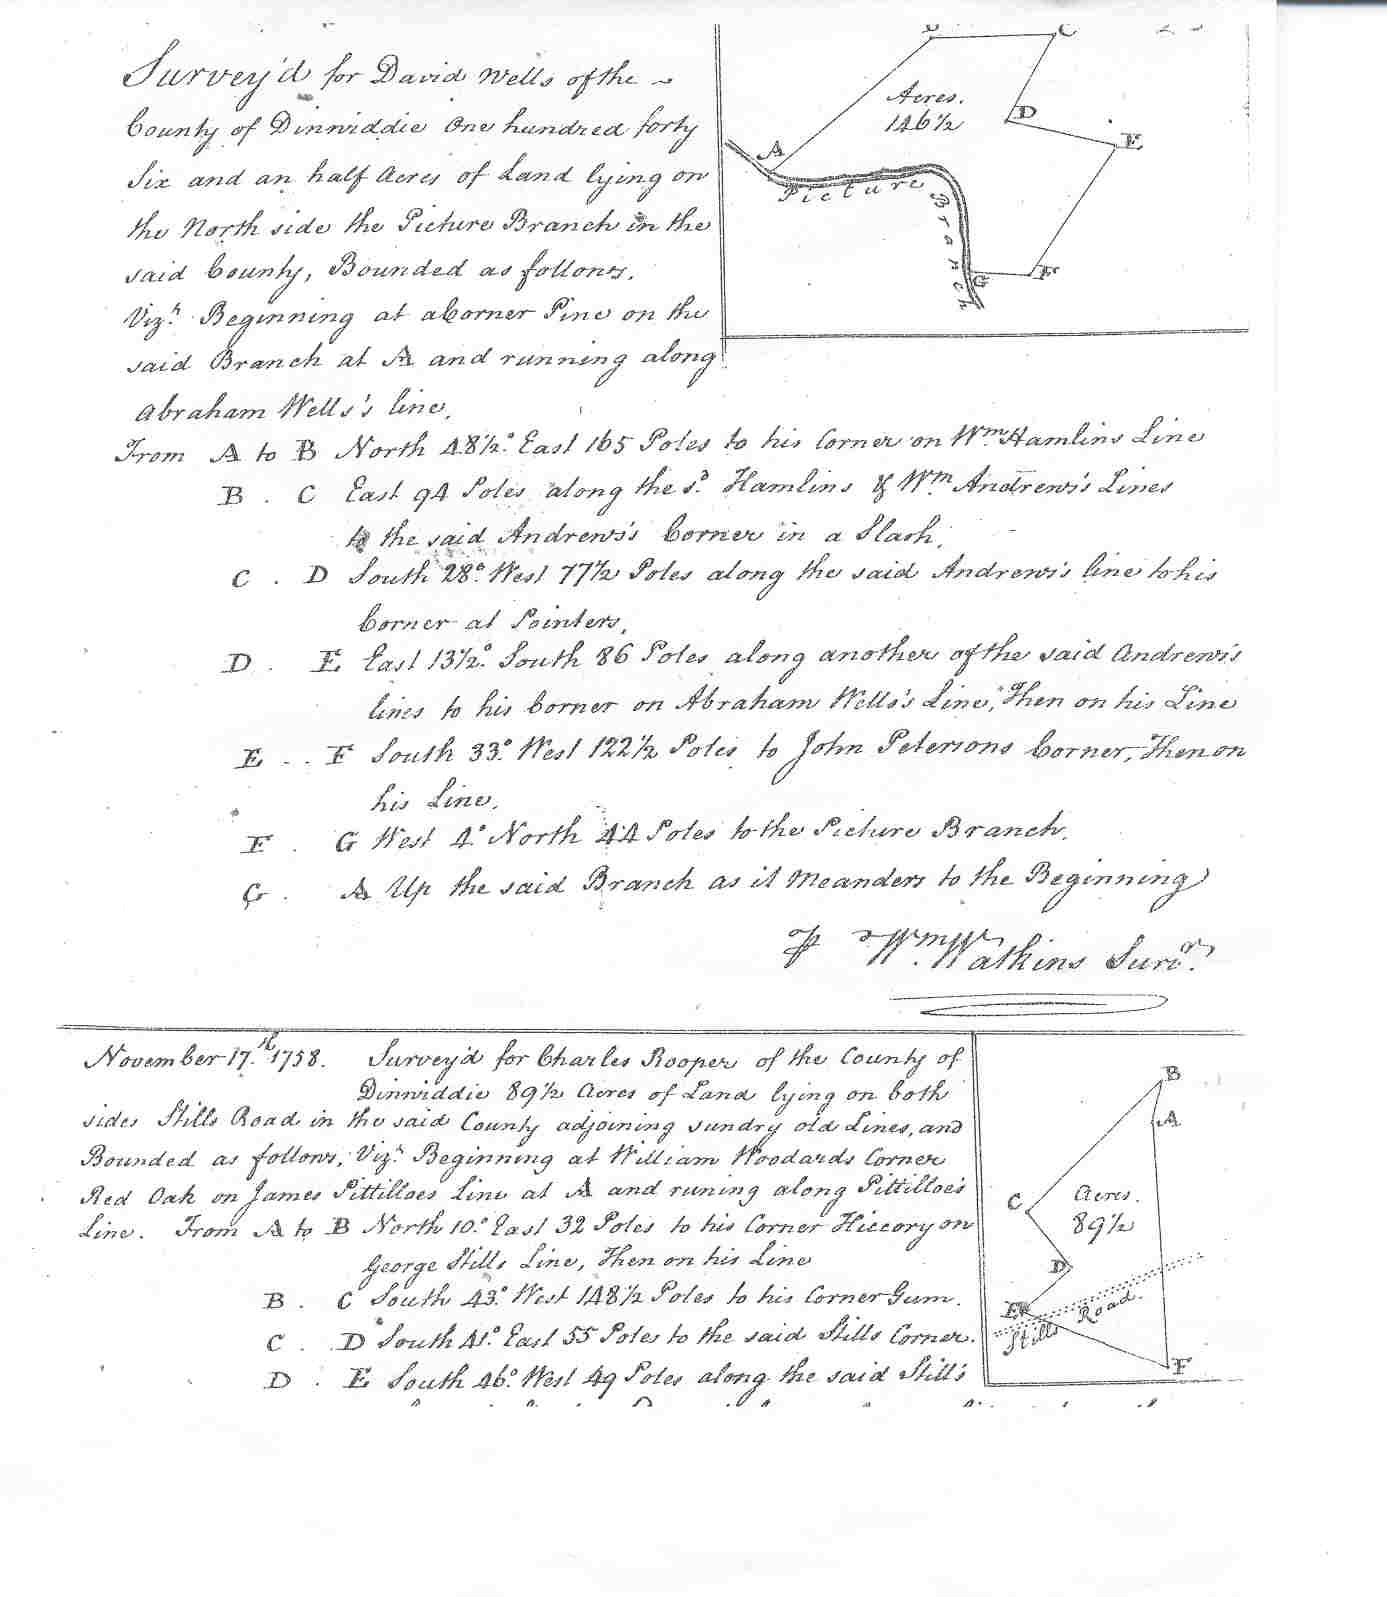 Survey'd for David Wells of the
County of Dinwiddie One hundred forty
Six and an half Acres of Land lying on
the North side the Picture Branch in the
said County, Bounded as follows,
Vizt. Beginning at a Corner Pine on the
said Branch at A and running along
Abraham Wells's line,
From A to B North 48½° East 165 Poles to his Corner on Wm. Hamlins Line
B . C East 94 Poles along the sd. Hamlins & Wm. Andrews's Lines
to the said Andrews's Corner in a Slash,
C . D South 28° West 77½ Poles along the said Andrews's line to his
Corner at Pointers,
D . E East 13½° South 86 Poles along another of the said Andrews's
lines to his Corner on Abraham Wells's Line, Then on his Line
E . . F South 33° West 122½ Poles to John Petersons Corner, Then on
his Line,
F . G West 4° North 44 Poles to the Picture Branch,
G . A Up the said Branch as it Meanders to the Beginning
P Wm. Watkins Survr.
C
Acres.
146½
D
E
A
Picture Branch
G
F
November 17.th 1758. Survey'd for Charles Rooper of the County of
Dinwiddie 89½ Acres of Land lying on both
sides Stills Road in the said County adjoining sundry old Lines, and
Bounded as follows, Vizt. Beginning at William Woodards Corner
Red Oak on James Pittilloes Line at A and runing along Pittilloe's
Line. From A to B North 10° East 32 Poles to his Corner Hiccory on
George Stills Line, Then on his Line
B . C South 43° West 148½ Poles to his Corner Gum.
C . D South 41° East 55 Poles to the said Stills Corner.
D . E South 46° West 49 Poles along the said Still's
B
A
C
Acres.
89½
D
E
Stills Road.
F